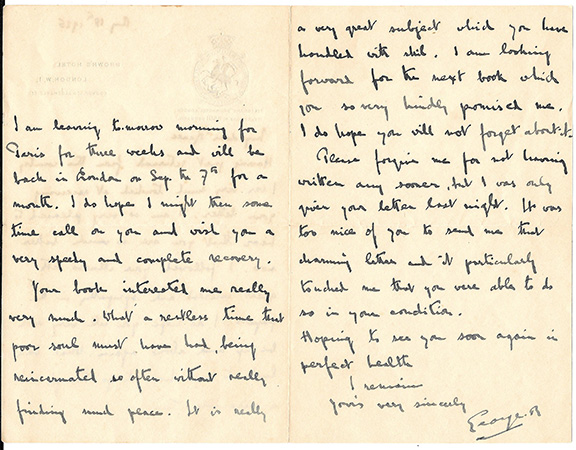 I am leaving tomorrow morning for
Paris for three weeks and will be
back in London on Sep. the 7th for a
month. I do hope I might then some
time call on you and wish you a
very speedy and complete recovery.
Your book interested me really
very much. What a restless time that
poor soul must have had, being
reincarnated so often without really
finding much peace. It is really
a very great subject which you have
handled with skill. I am looking
forward for the next book which
you so very kindly promised me.
I do hope you will not forget about it.
Please forgive me for not having
written any sooner, but I was only
given your letter last night. It was
too nice of you to send me that
charming letter and it particularly
touched me that you were able to do
so in your condition.
Hoping to see you soon again in
perfect health
I remain
yours very sincerely
George. R